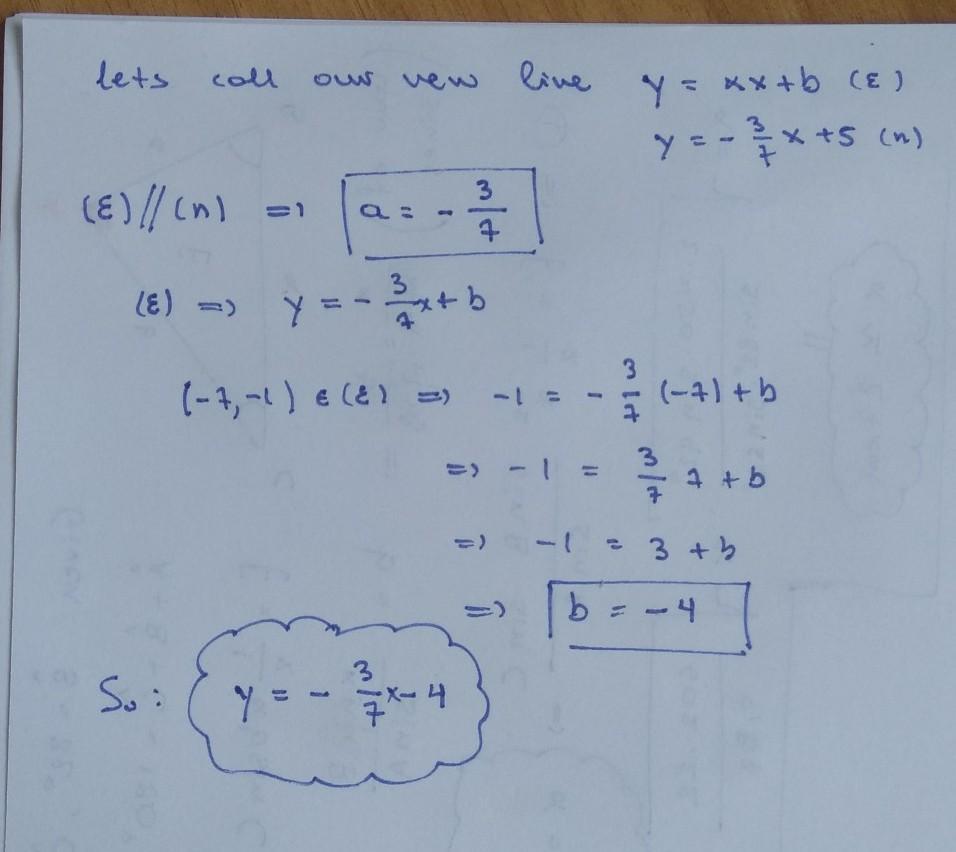 lets call our new line y = αx+b (ε)
y = - 3/7 x +5 (n)
(ε)//(n) => a = - 3/7
(ε) => y = - 3/7 x + b
(-7,-1) ∈ (ε) => -1 = - 3/7 (-7) + b
=> -1 = 3/7 7 + b
=> -1 = 3 + b
=> b = -4
So: y = - 3/7 x - 4